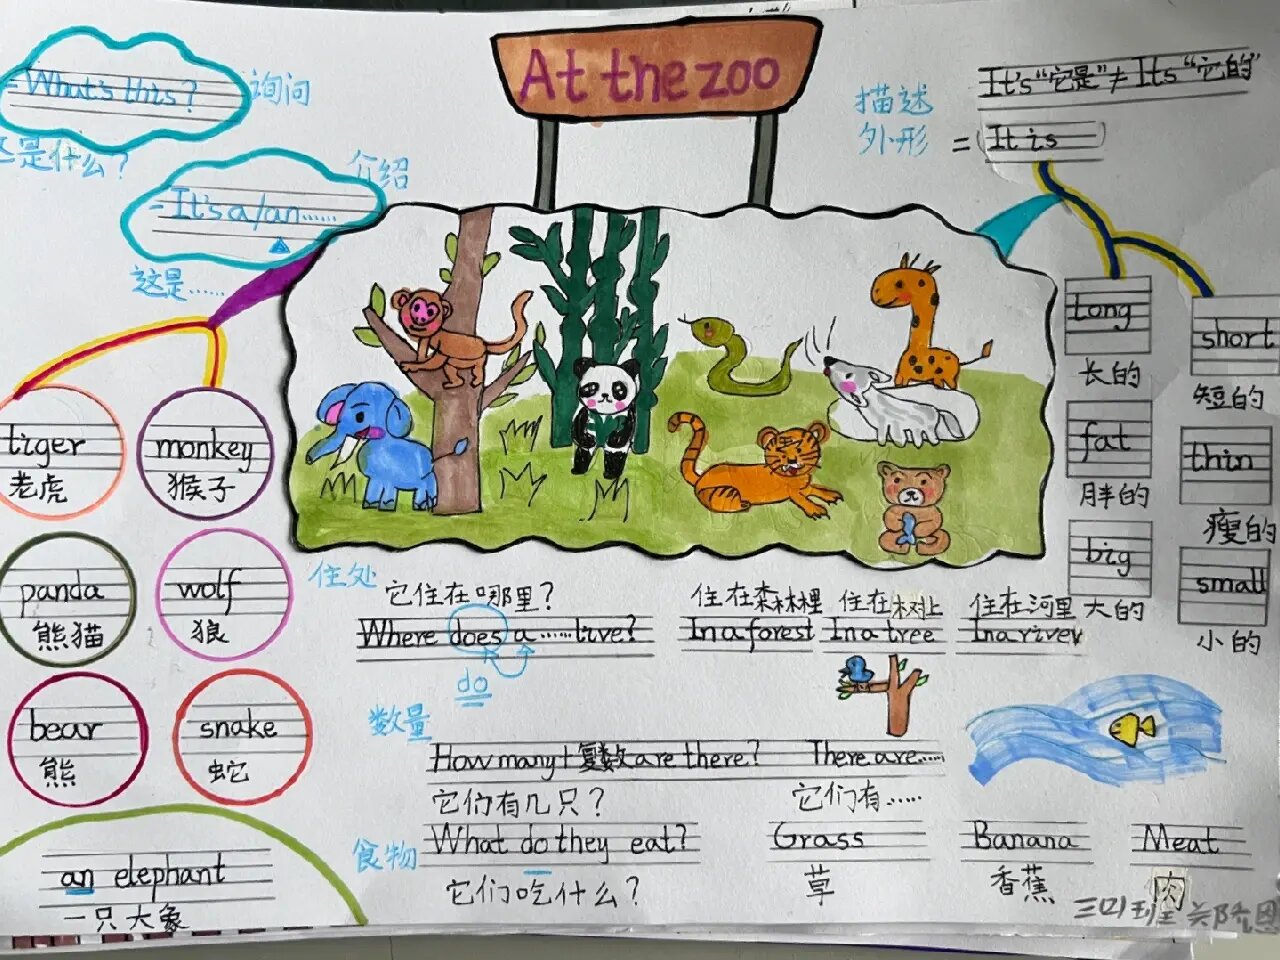 At the zoo
What's this?
询问
是什么?
介绍
It's a/an......
这是......
tiger
老虎
monkey
猴子
panda
熊猫
wolf
狼
bear
熊
snake
蛇
an elephant
一只大象
描述
外形
It's“它是”≠Its“它的”
=(It is)
long
长的
short
短的
fat
胖的
thin
瘦的
big
大的
small
小的
住处
它住在哪里?
Where does a ...... live?
do
住在森林里
In a forest
住在树上
In a tree
住在河里
In a river
数量
How many+复数 are there?
它们有几只?
There are......
它们有......
食物
What do they eat?
它们吃什么?
Grass
草
Banana
香蕉
Meat
肉
三四班